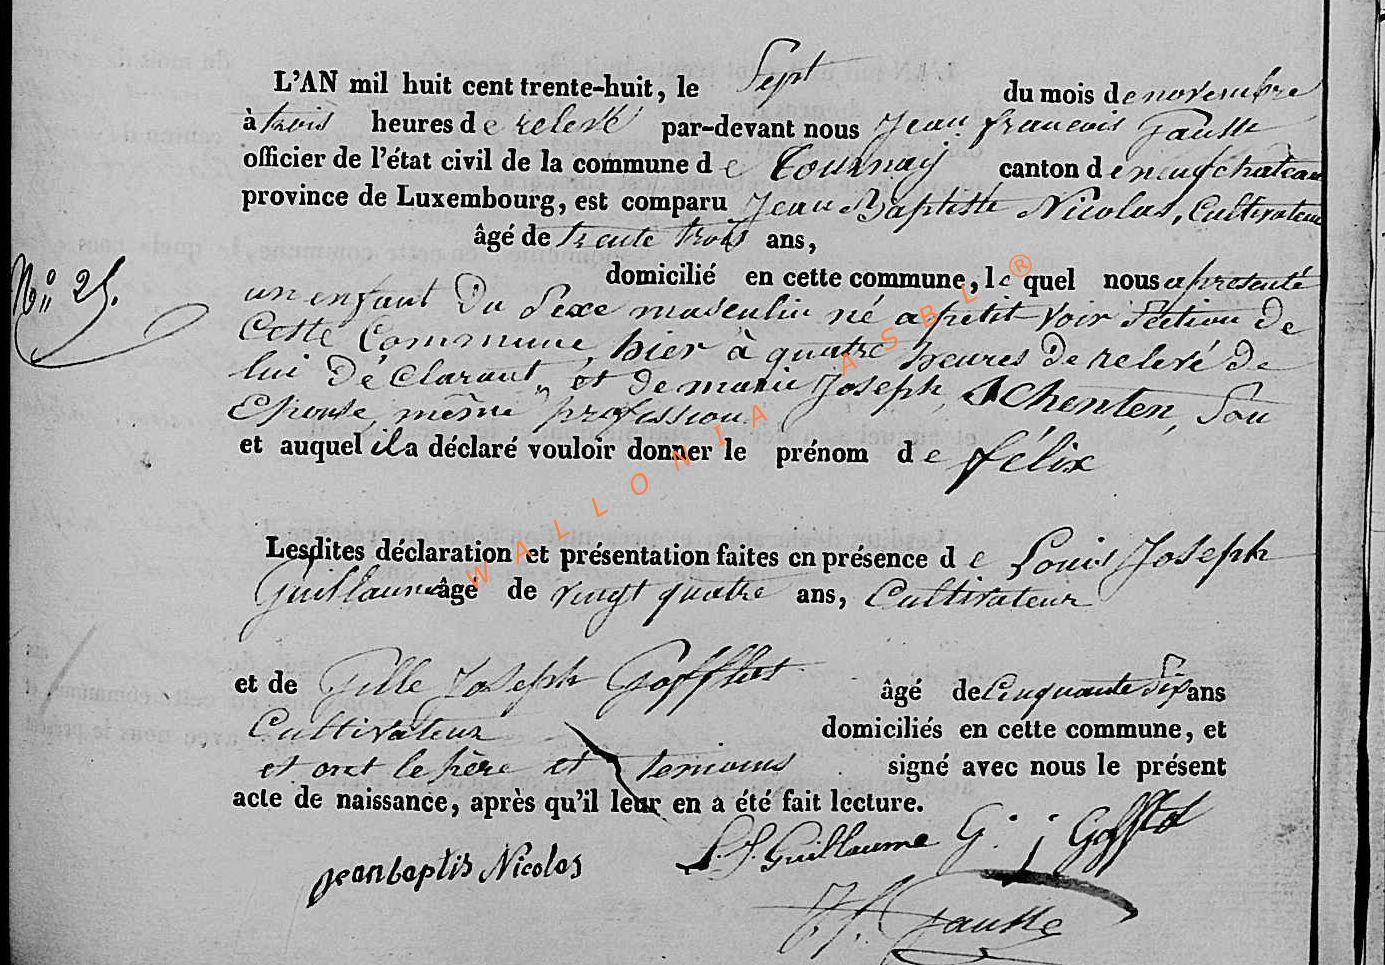 L'AN mil huit cent trente-huit, le Sept du mois de novembre
à trois heures de relevé par-devant nous Jean francois
officier de l'état civil de la commune de tournay canton de neufchateau
province de Luxembourg, est comparu Jean Baptiste Nicolas, Cultivateur
âgé de trente trois ans,
domicilié en cette commune, lequel nous a presenté
N° 25.
un enfant Du Sexe masculin né a petit voir Section De
Cette Commune, hier à quatre heures De relevé De
lui Déclarant, et de marie Joseph Schenten, Son
Epouse, même profession
et auquel il a déclaré vouloir donner le prénom de félix
Lesdites déclaration et présentation faites en présence de Louis Joseph
Guillaume âgé de vingt quatre ans, Cultivateur
et de Gille Joseph Gofflot âgé de Cinquante Six ans
Cultivateur domiciliés en cette commune, et
et ont le père et temoins signé avec nous le présent
acte de naissance, après qu'il leur en a été fait lecture.
jean baptis Nicolas L. J. Guillaume G. j Gofflot
J. f.
WALLONIA ASBL ®